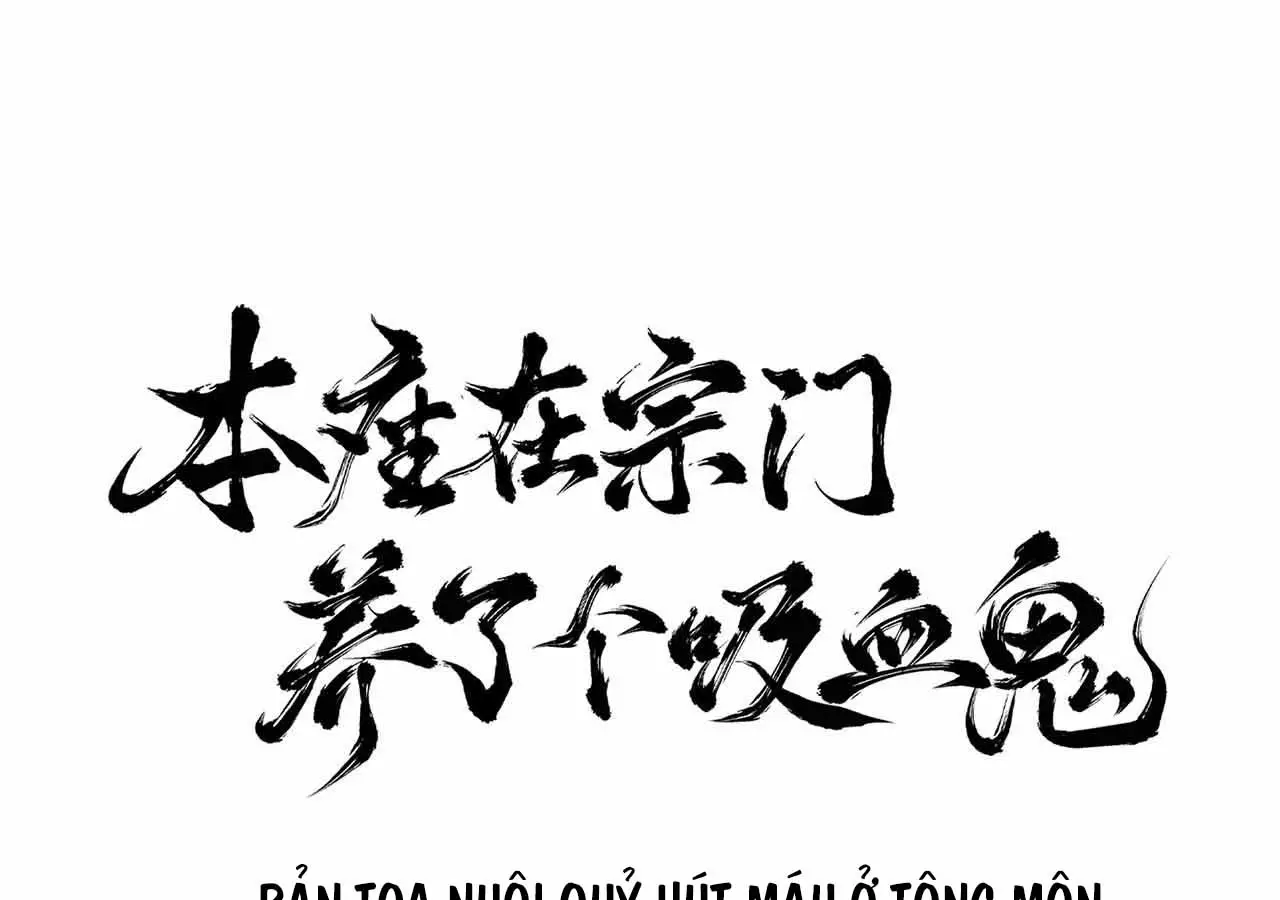 本座在宗门
养了个吸血鬼
BẢN TỌA NUÔI QUỶ HÚT MÁU Ở TÔNG MÔN